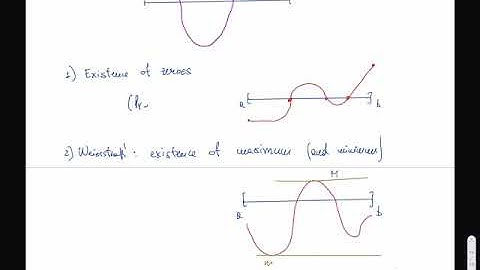 1) Existence of zeroes
a b
2) Weierstraß: existence of maximum (and minimum)
M
a b
m